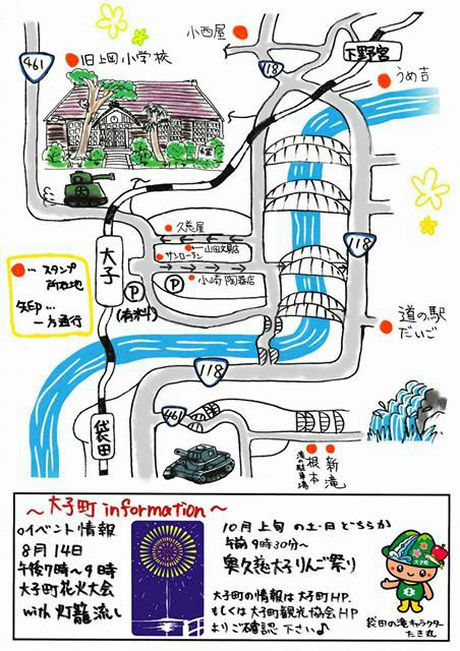 小西屋
461
旧上岡小学校
118
下野宮
うめ吉
久慈屋
山田文具店
サンローラン
小崎陶器店
大子
P
(有料)
P
118
…スタンプ
所在地
矢印…
一方通行
道の駅
だいご
118
461
袋田
新滝
根本
滝の駐車場
～大子町 information～
○イベント情報
8月14日
午後7時～9時
大子町花火大会
with 灯籠流し
10月上旬の土・日どちらか
午前9時30分～
奥久慈大子りんご祭り
大子町の情報は大子町HP.
もしくは大子町観光協会HP
よりご確認下さい♪
大子町
袋田の滝キャラクター
たき丸